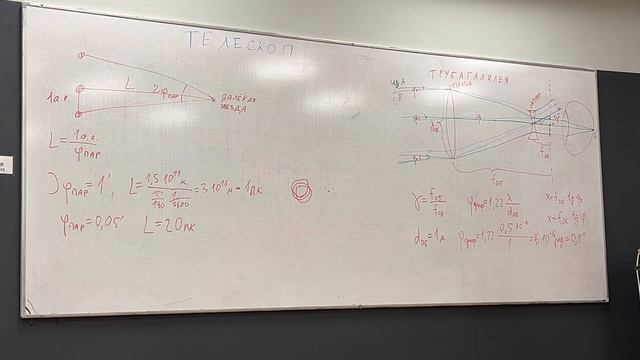 ТЕЛЕСКОП
1 а.е.
L
2φпар
ДАЛЁКАЯ
ЗВЕЗДА
L = 1 а.е. / φпар
φпар = 1'
L = 1,5 10¹¹ м / π/180 1/3600 = 3 10¹⁶ м = 1 ПК
φпар = 0,05'
L = 20 ПК
ТРУБА ГАЛИЛЕЯ
dоб
fоб
fок
γ = fоб / fок
φдиф = 1,22 λ / dоб
x = fоб tg φ₀
x = fок tg φ
dоб = 1 м
φдиф = 1,22 0,5 10⁻⁶ / 1
рад = 0,1"